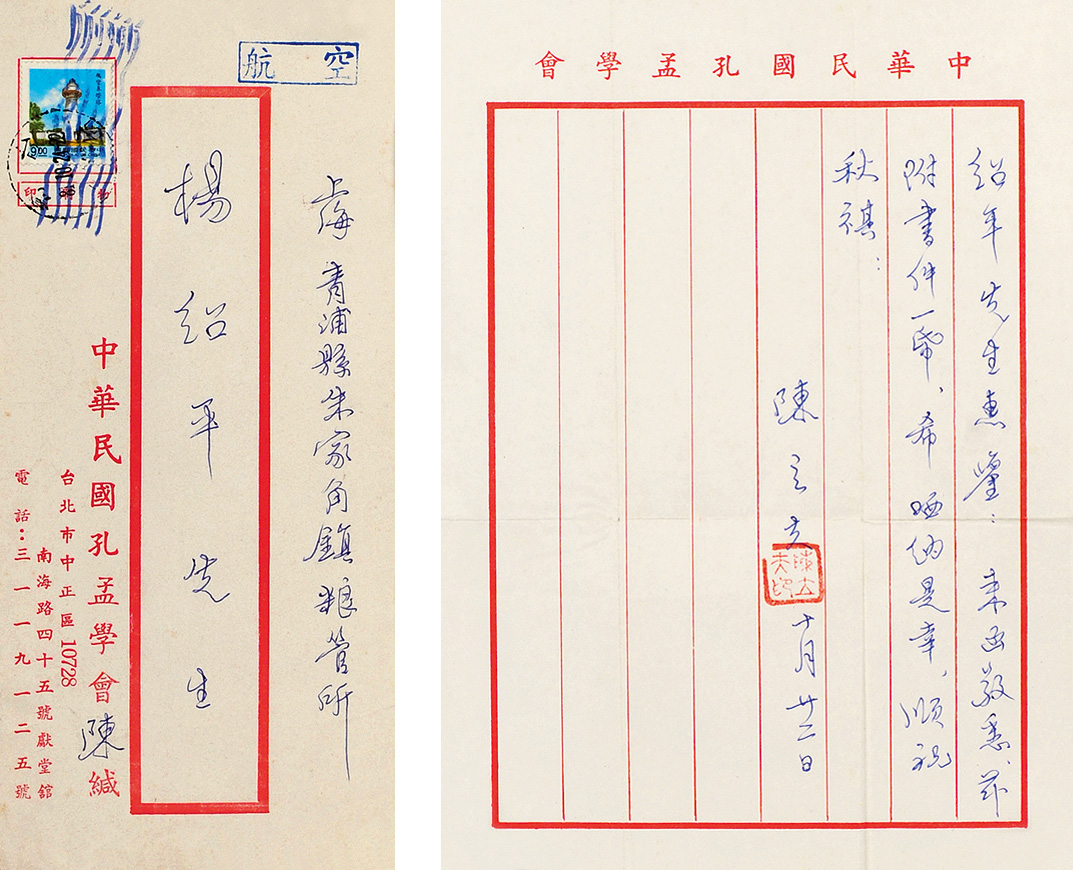 空航
9.00
上海 青浦縣朱家角鎮粮管所
楊紹平先生
中華民國孔孟學會陳緘
台北市中正區10728
南海路四十五號獻堂舘
電話：三一一九一二五號
中華民國孔孟學會
紹年先生惠鑒：來函敬悉、茲
附書件一帋、希 哂納是幸，順祝
秋祺：
陳立夫
陳立夫印
十月廿二日